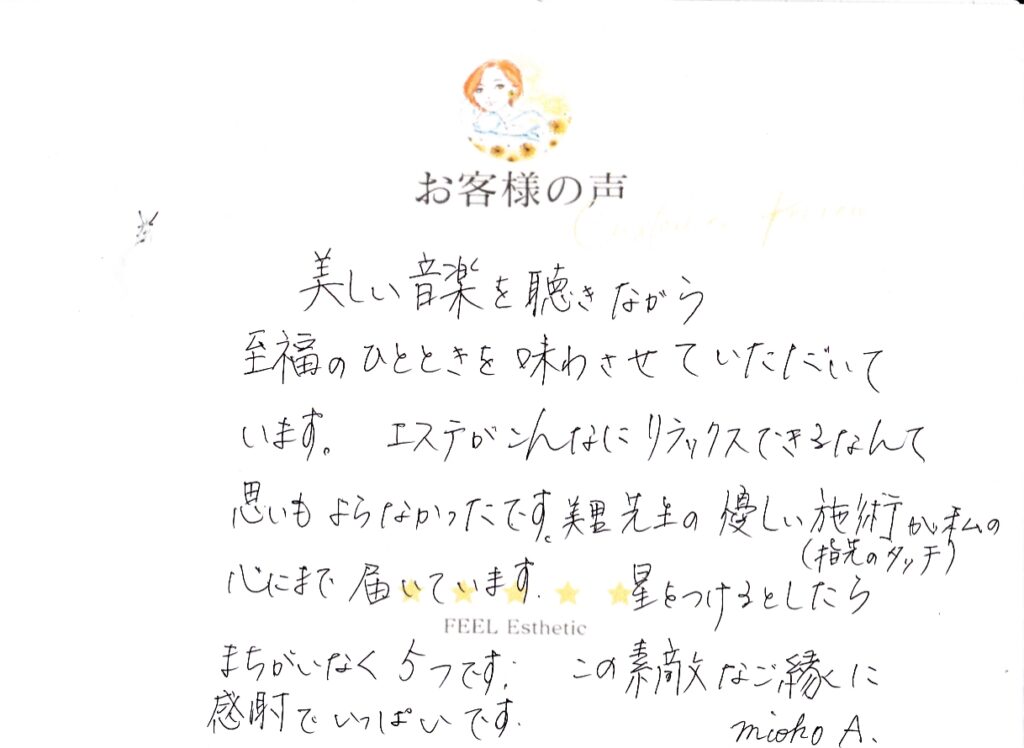 お客様の声
美しい音楽を聴きながら
至福のひとときを味わさせていただいて
います。 エステがこんなにリラックスできるなんて
思いもよらなかったです。美里先生の優しい施術が私の
(指先のタッチ)
心にまで届いています. 星をつけるとしたら
FEEL Esthetic
まちがいなく5つです. この素敵なご縁に
感謝でいっぱいです.
mioko A.